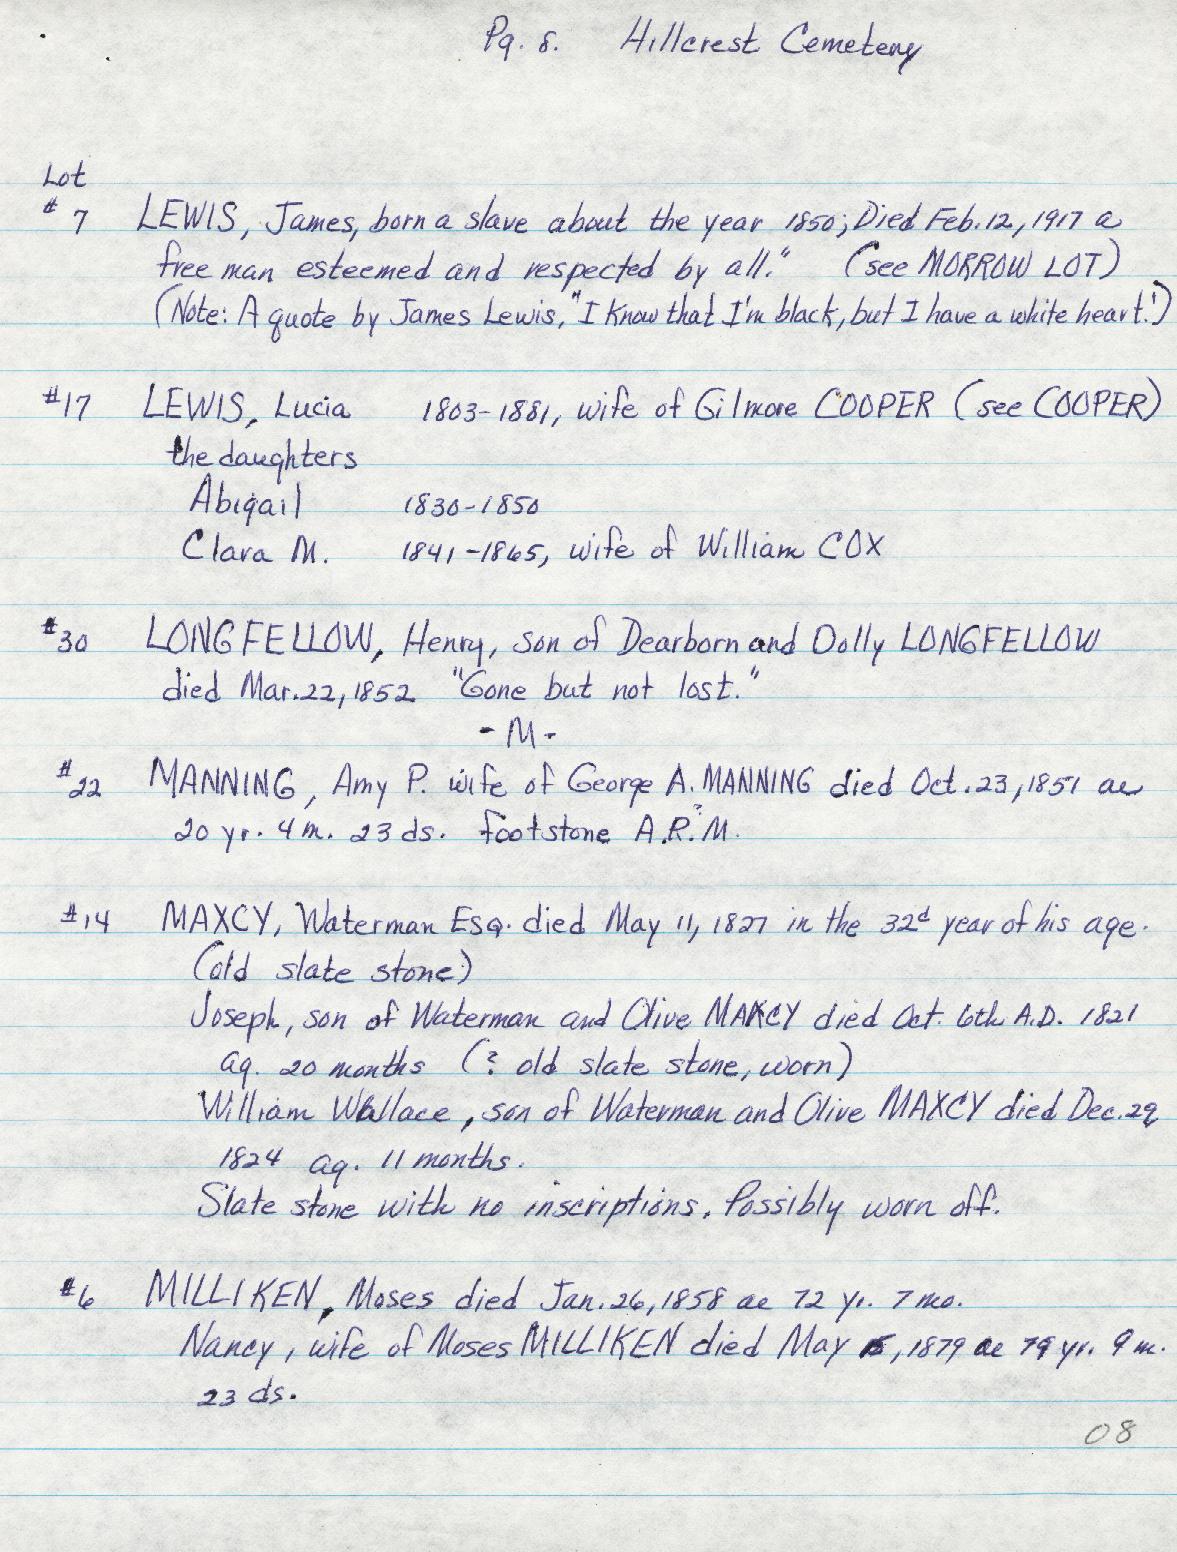 Pg. 8. Hillcrest Cemetery
Lot
# 7 LEWIS, James, born a slave about the year 1850; Died Feb. 12, 1917 a
free man esteemed and respected by all." (see MORROW LOT)
(Note: A quote by James Lewis, "I know that I'm black, but I have a white heart.")
#17 LEWIS, Lucia 1803-1881, wife of Gilmore COOPER (see COOPER)
the daughters
Abigail 1830-1850
Clara M. 1841-1865, wife of William COX
#30 LONGFELLOW, Henry, son of Dearborn and Dolly LONGFELLOW
died Mar. 22, 1852 "Gone but not lost."
- M -
#22 MANNING, Amy P. wife of George A. MANNING died Oct. 23, 1851 ae
20 yr. 4 m. 23 ds. footstone A.R.?M.
#14 MAXCY, Waterman Esq. died May 11, 1827 in the 32d year of his age.
(old slate stone)
Joseph, son of Waterman and Olive MAXCY died Oct. 6th A.D. 1821
ag. 20 months (? old slate stone, worn)
William Wallace, son of Waterman and Olive MAXCY died Dec. 29
1824 ag. 11 months.
Slate stone with no inscriptions. Possibly worn off.
#6 MILLIKEN, Moses died Jan. 26, 1858 ae 72 yr. 7 mo.
Nancy, wife of Moses MILLIKEN died May , 1879 ae 79 yr. 9 m.
23 ds.
08